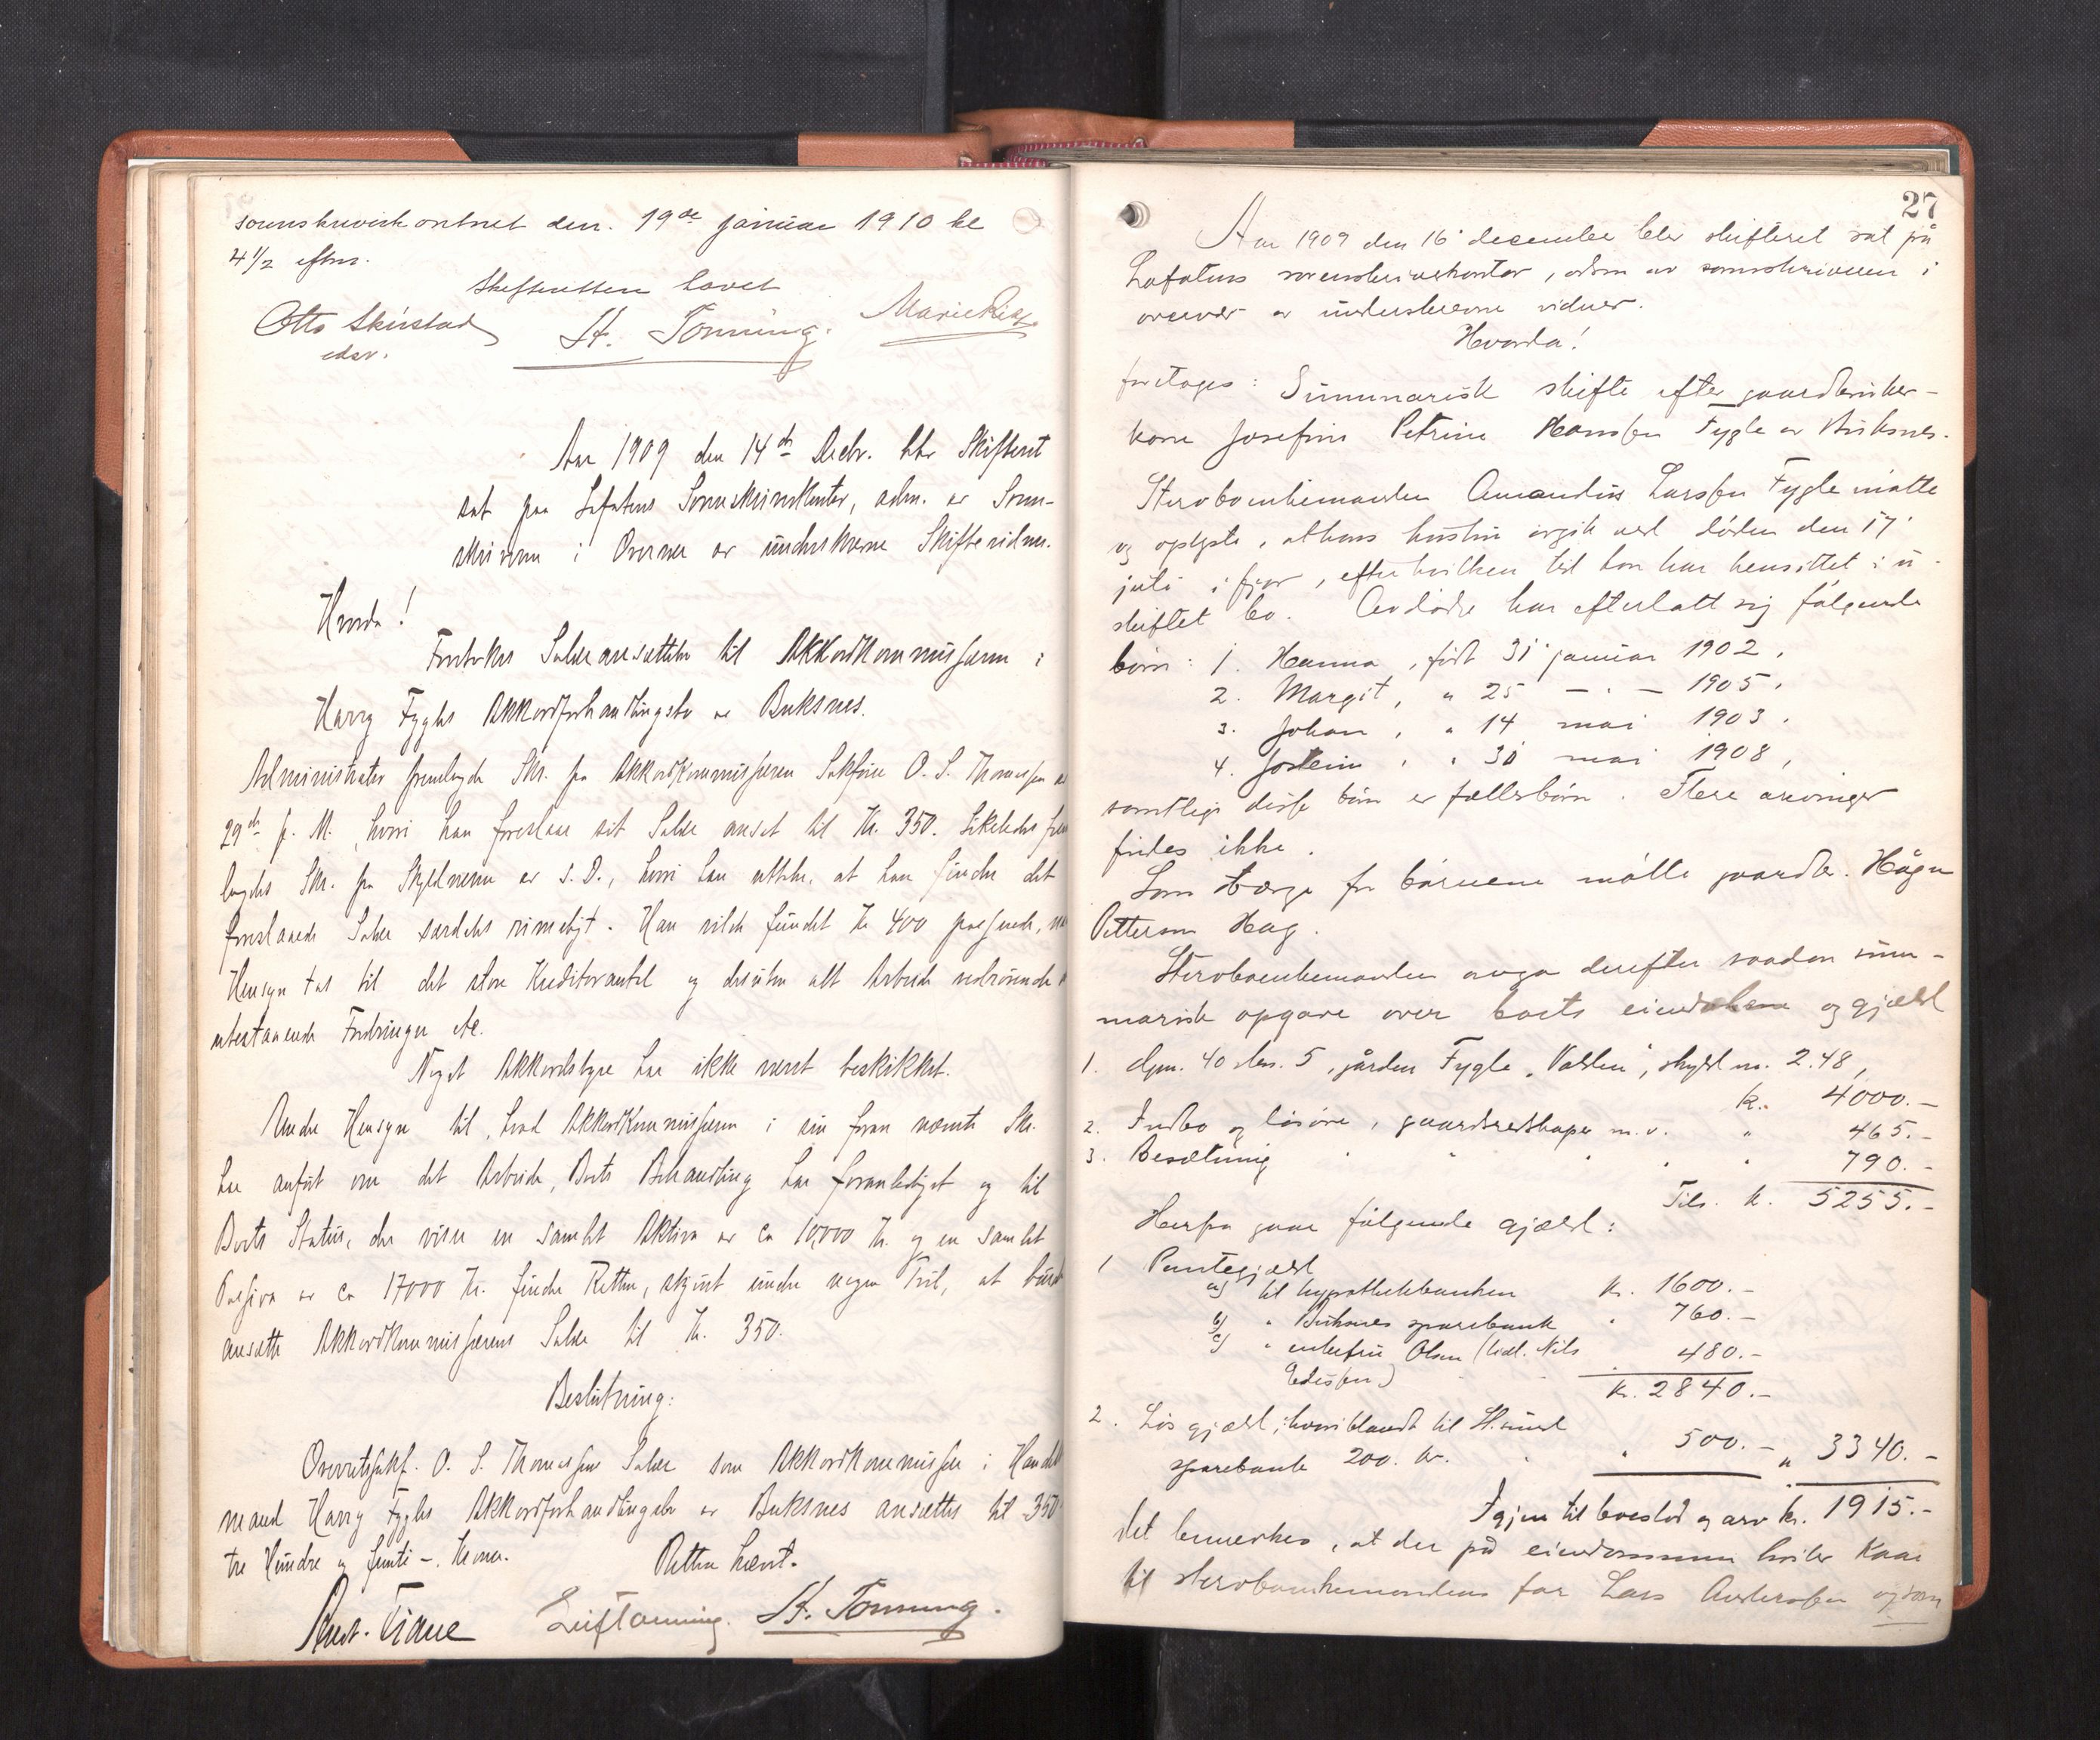 sorenskriverkontoret den. 19de januar 1910 kl
4 1/2 eftm.
Skifteretten hævet
Otto Skirstad
edsv.
St. Tønning.
Marie
Aar 1909 den 14de Decbr. blev Skifteret
sat paa Lofotens Sorenskriverkontor, adm. av Soren-
skriveren i Overvær av underskrevne Skiftevidner.
Hvorda!
Foretokes Salæransættelse til Akkordkommissæren i
Harry Fygles Akkordforhandlingsbo av Buksnes.
Administrator fremlagde Skr. fra Akkordkommissæren Sakfører O. S. Thomessen av
29de f. M., hvori han foreslaar sit Salær ansat til Kr. 350. Likeledes frem
lagdes Skr. fra Skyldneren av s. D., hvori han uttaler, at han finder det
foreslaaede Salær særdeles rimeligt. Han vilde fundet Kr 400 passende, naar
Hensyn tas til det store Kreditorantal og desuten alt Arbeide vedrørende
utestaaende Fordringer etc.
Noget Akkordstyre har ikke været beskikket.
Under Hensyn til, hvad Akkordkommissæren i sin foran nævnte Skr.
har anført om det Arbeide, Boets Behandling har foranlediget og til
Boets Status, der viser en samlet Aktiva av ca 10,000 Kr. og en samlet
Passiva av ca 17000 Kr. finder Retten, skjønt under nogen Tvil, at burde
ansætte Akkordkommissærens Salær til Kr. 350.
Beslutning:
Overretssakf. O. S. Thomessens Salær som Akkordkommissær i Handels
mand Harry Fygles Akkordforhandlingsbo av Buksnes ansættes til 350
tre Hundre og femti –. Kroner.
Retten hævet.
Leif Tønning. St. Tønning.
27
Aar 1909 den 16 december blev skifteret sat på
Lofotens sorenskriverkontor, adm av sorenskriveren i
overvær av underskrevne vidner.
Hvorda!
foretages: Summarisk skifte efter gaardbruker-
kone Josefine Petrine Hanssen Fygle av Buksnes.
Stervboenkemanden Amandus Larssen Fygle møtte
og oplyste, at hans hustru avgik ved døden den 17
juli i fjor, efter hvilken tid han har hensittet i u-
skiftet bo. Avdøde har efterlatt sig følgende
børn: 1. Hanna, født 31 januar 1902,
2. Margit, " 25 – . – 1905,
3. Johan, " 14 mai 1903.
4. Jostein, " 30 mai 1908,
samtlige disse børn er fællesbørn. Flere arvinger
findes ikke.
Som værge for børnene møtte gaardbr. Hågen
Petterson Hag.
Stervboenkemanden avga derefter saadan sum-
marisk opgave over boets eiendeler og gjæld
1. Gjm. 40 bnr. 5, gården Fygle „Volden", skyld m. 2.48,
k. 4000.–
2. Indbo og løsøre, gaardsredskaper m.v. " 465.–
3. Besætning " 790.–
Tils. k. 5255.–
Herfra gaar følgende gjæld:
1 Pantegjæld
a) til hypothekbanken kr. 1600.–
b) " Buksnes sparebank " 760.–
c) " enkefru Olsen (tidl. Nils " 480.–
Edissen)
kr. 2840.–
2. Løs gjæld, hvoriblandt til H.sund
sparebank 200. kr. " 500.– " 3340.–
Igjen til boeslod og arv kr. 1915.–
Det bemerkes, at der på eiendommen hviler kaar
til stervboenkemandens far Lars Anderssen og som